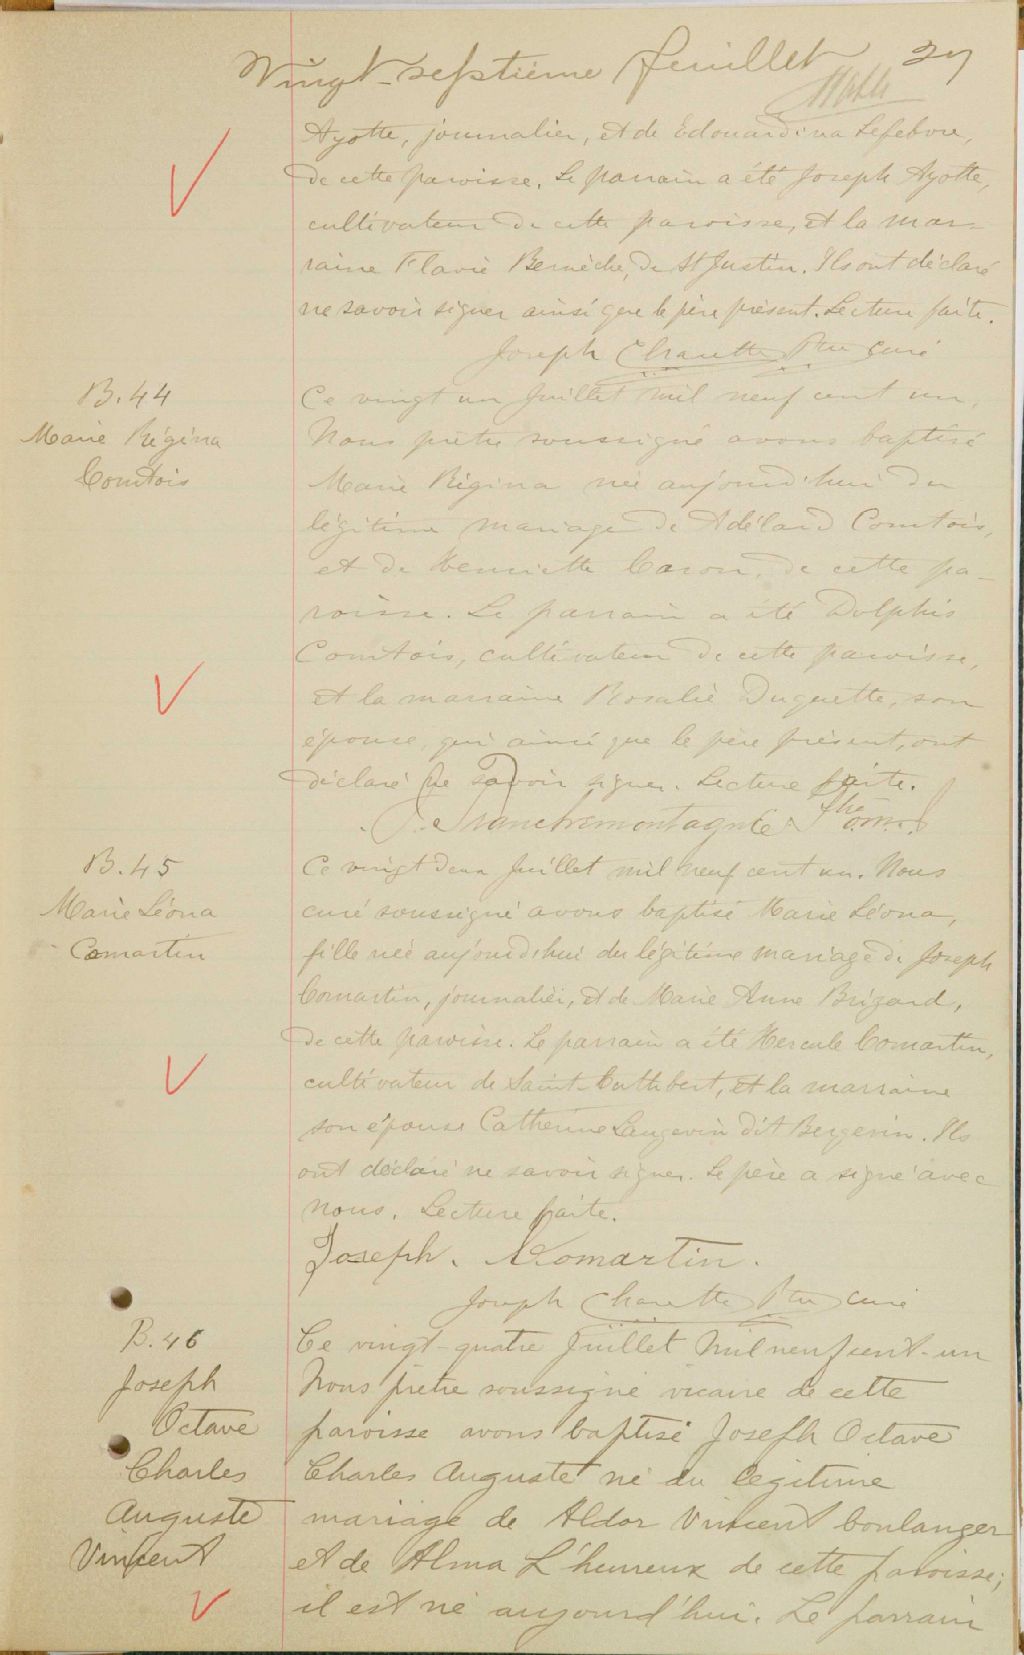 Vingt-septième feuillet 27
Ayotte, journalier, et de Edouardina Lefebvre,
de cette paroisse. Le parrain a été Joseph Ayotte,
cultivateur de cette paroisse, et la mar-
raine Flavie Bernèche, de St Justin. Ils ont déclaré
ne savoir signer ainsi que le père présent. Lecture faite.
Joseph Charette Ptre curé
B. 44
Marie Régina
Comtois
Ce vingt un Juillet mil neuf cent un,
Nous prêtre soussigné avons baptisé
Marie Régina née aujourd'hui du
légitime mariage de Adélard Comtois,
et de Henriette Caron, de cette pa-
roisse. Le parrain a été Dolphis
Comtois, cultivateur de cette paroisse,
et la marraine Rosalie Duguette, son
épouse, qui ainsi que le père présent, ont
déclaré ne savoir signer. Lecture faite.
Franchemontagne
B. 45
Marie Léona
Comartin
Ce vingt deux Juillet mil neuf cent un. Nous
curé soussigné avons baptisé Marie Léona,
fille née aujourd'hui du légitime mariage de Joseph
Comartin, journalier, et de Marie Anne Brizard,
de cette paroisse. Le parrain a été Hercule Comartin,
cultivateur de Saint-Cuthbert, et la marraine
son épouse Catherine Langevin dit Bergevin. Ils
ont déclaré ne savoir signer. Le père a signé avec
nous. Lecture faite.
Joseph. Comartin.
Joseph Charette Ptre curé
B. 46
Joseph
Octave
Charles
Auguste
Vincent
Ce vingt-quatre Juillet mil neuf cent-un
Nous prêtre soussigné vicaire de cette
paroisse avons baptisé Joseph Octave
Charles Auguste né du légitime
mariage de Aldor Vincent boulanger
et de Alma L'heureux de cette paroisse;
il est né aujourd'hui. Le parrain